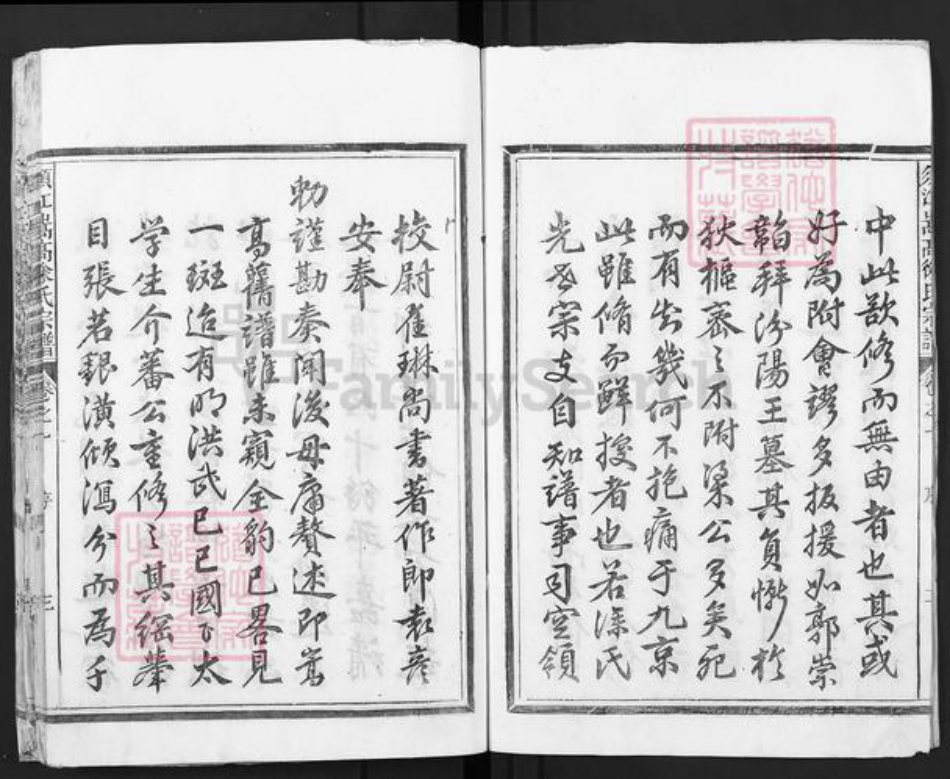 中此欲修而無由者也其或
好為附會謬多扳援如郭崇
韜拜汾陽王墓其負慚於
狄樞密之不附梁公多矣死
而有知幾何不抱痛于九京
此雖脩而鮮援者也若涂氏
先世宗支自知譜事司空領
校尉崔琳尚書著作郎袁彥
安奉
勅謹勘奏聞後毋庸贅述即嵩
高舊譜雖未窺全豹已畧見
一斑迨有明洪武己巳國子太
學生介蕃公重修之其綱舉
目張若銀潢傾瀉分而為千
須江嵩高徐氏宗譜
卷之一
序
三
FamilySearch